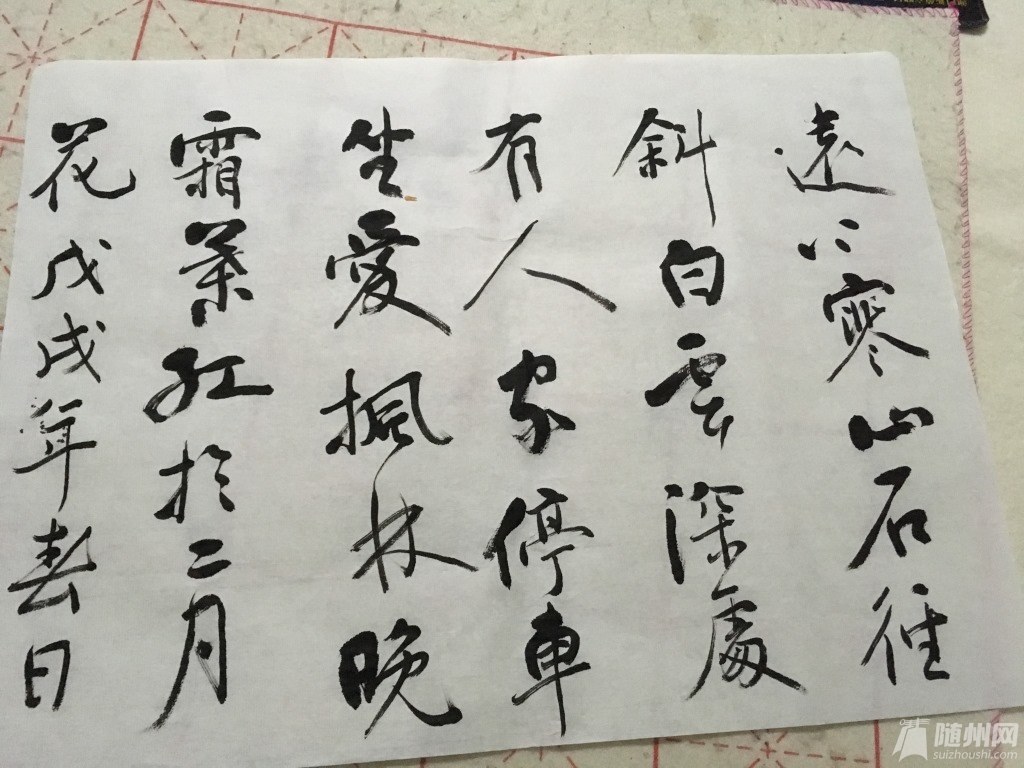 遠上寒山石徑
斜白雲深處
有人家停車
坐愛楓林晚
霜葉紅於二月
花戊戌年春日
随州网
suizhoushi.com